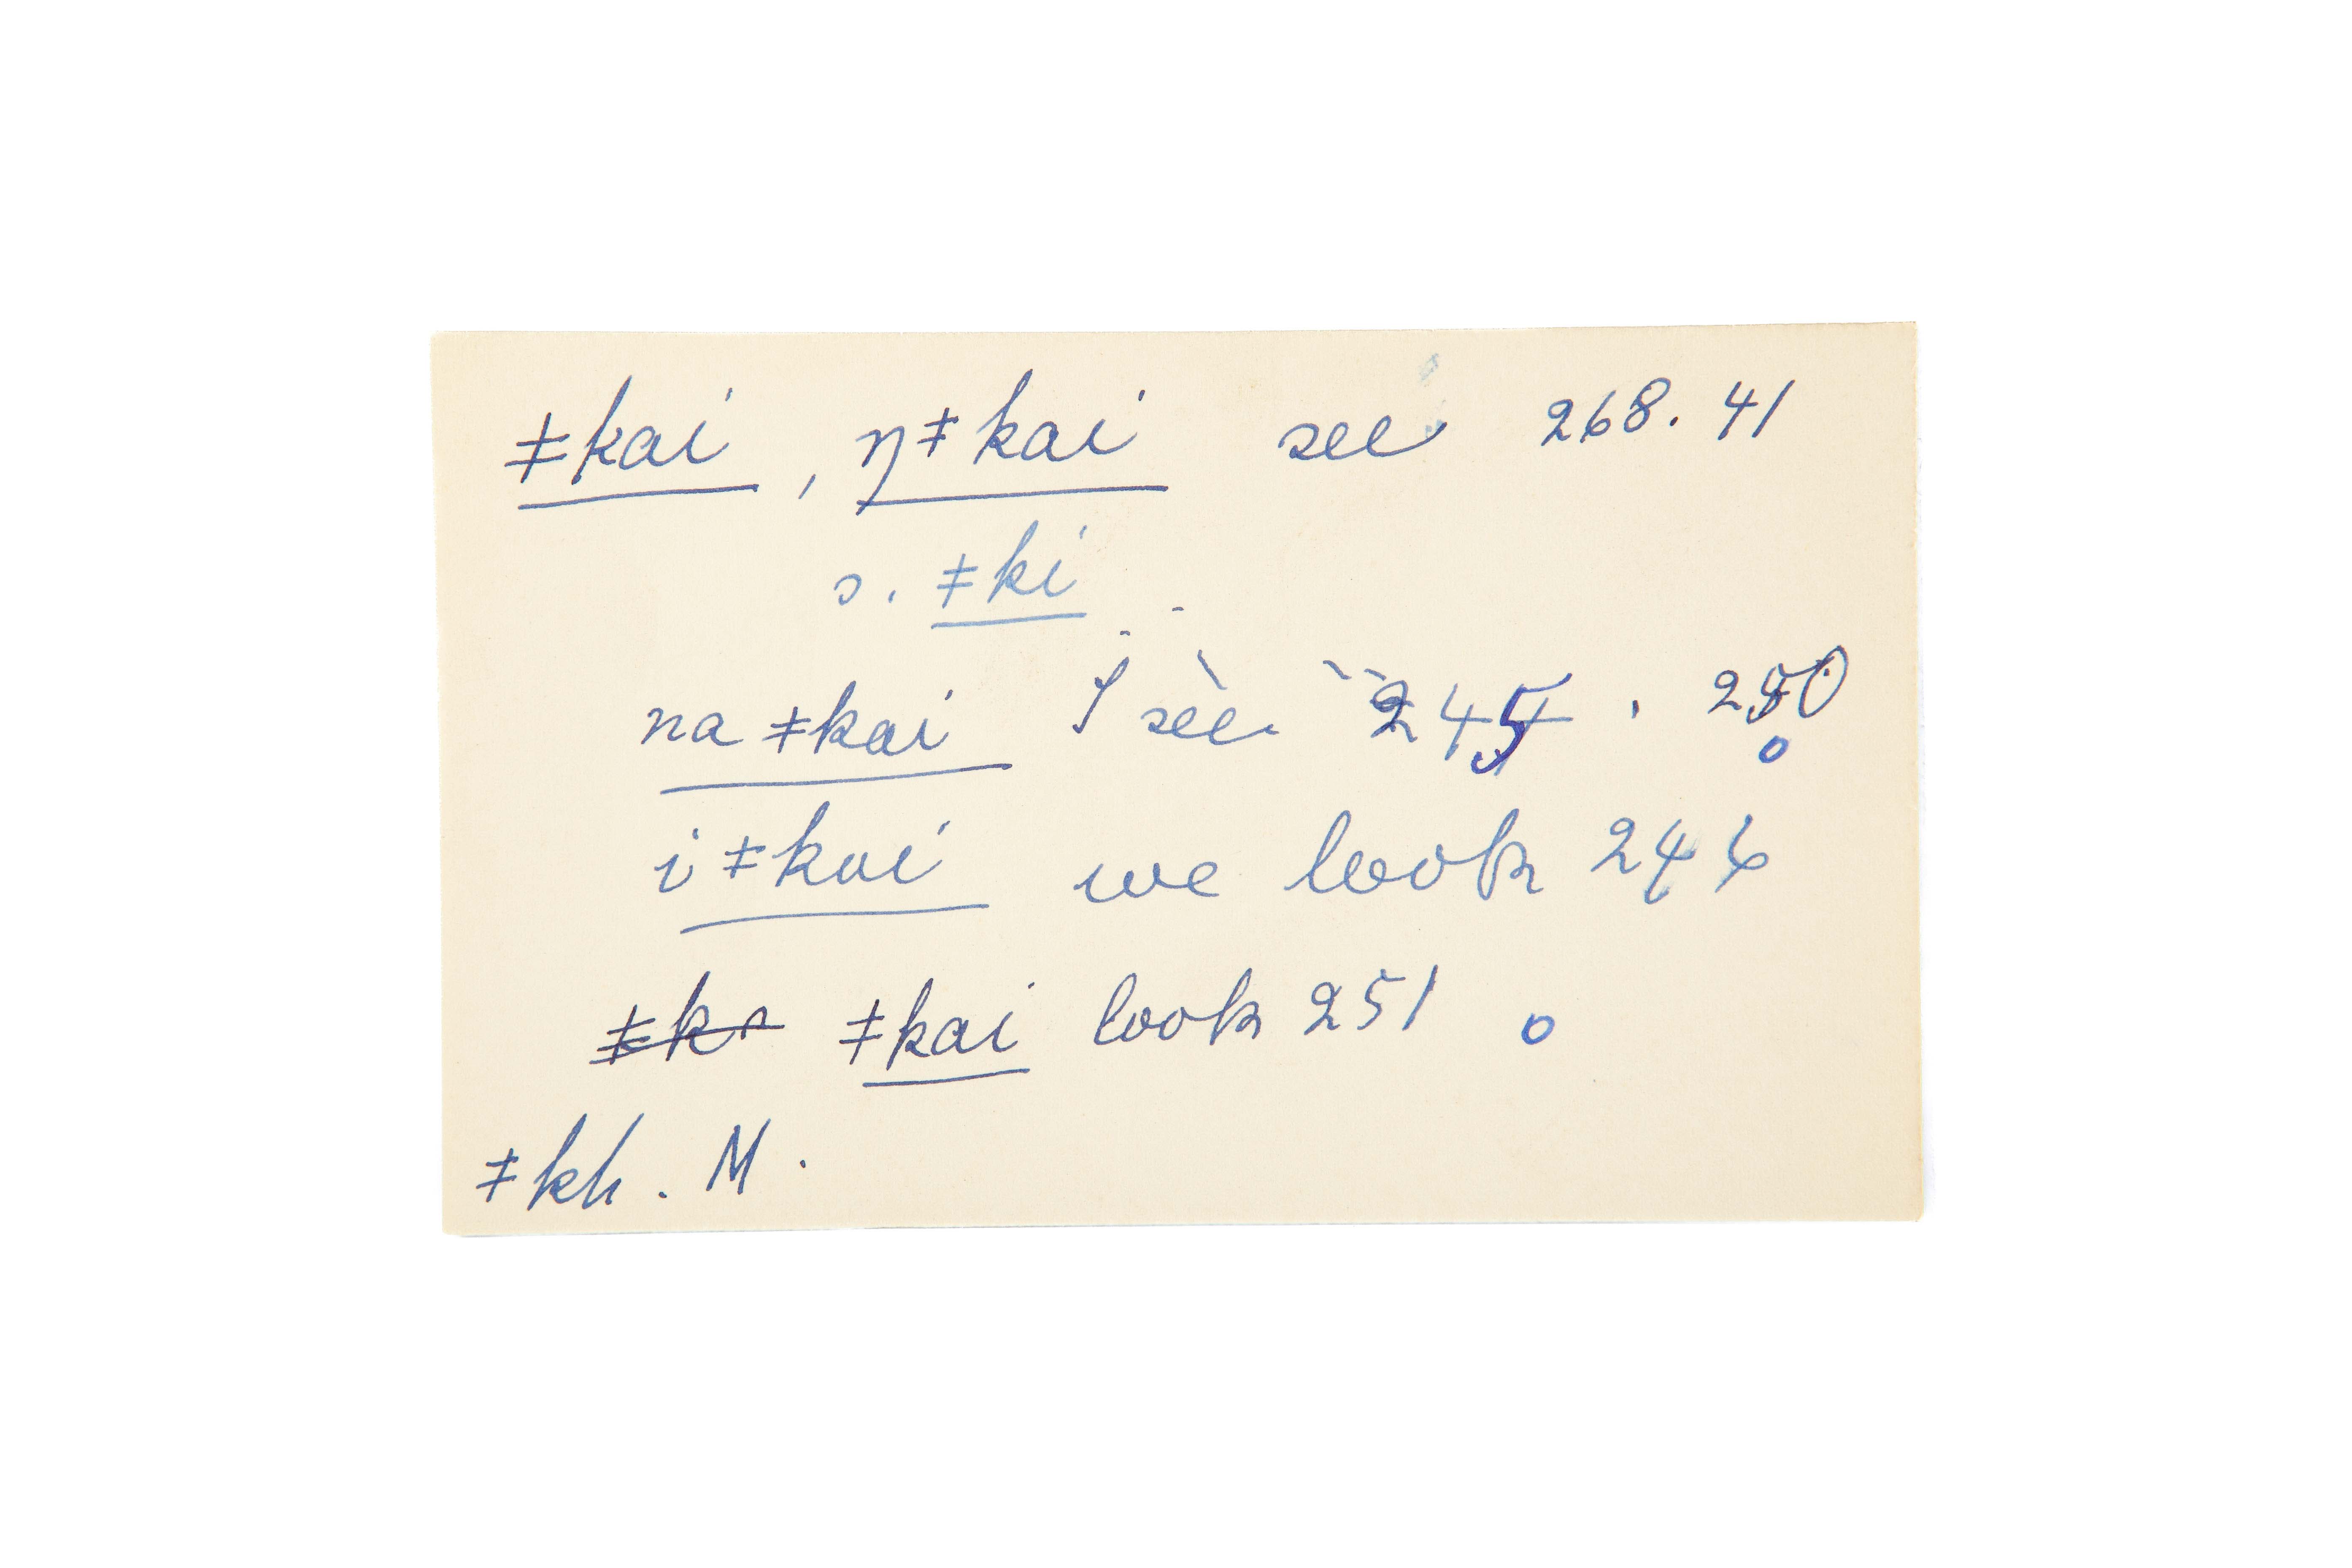 ǂkai, ŋǂkai see 268. 41
s. ǂki
na ǂkai I see 245, 250
i ǂkai we look 246
ǂka ǂkai look 251 o
ǂkh. M.